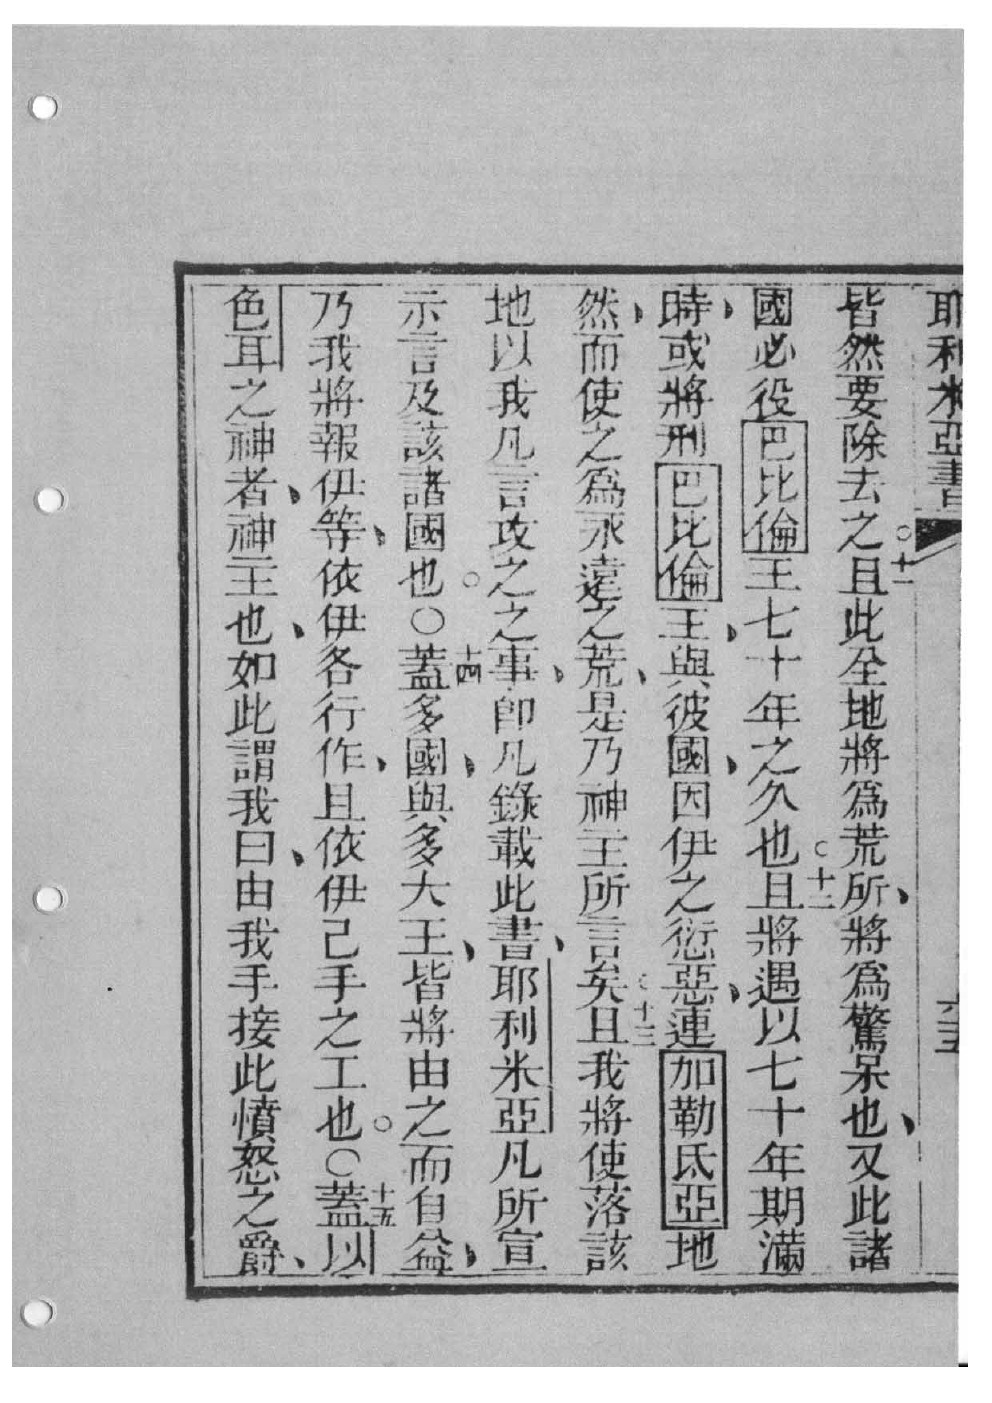 耶利米亞書 六五
皆然要除去之。十一且此全地將爲荒所、將爲驚呆也、又此諸
國必役巴比倫王七十年之久也。十二且將遇以七十年期滿
時、或將刑巴比倫王、與彼國、因伊之愆惡、連加勒氐亞地
然、而使之爲永遠之荒、是乃神主所言矣。十三且我將使落該
地以我凡言攻之之事、即凡錄載此書、耶利米亞凡所宣
示言及該諸國也。○十四蓋多國、與多大王、皆將由之而自益、
乃我將報伊等、依伊各行作、且依伊己手之工也。○十五蓋以
色耳之神者、神主也、如此謂我曰、由我手接此憤怒之爵、